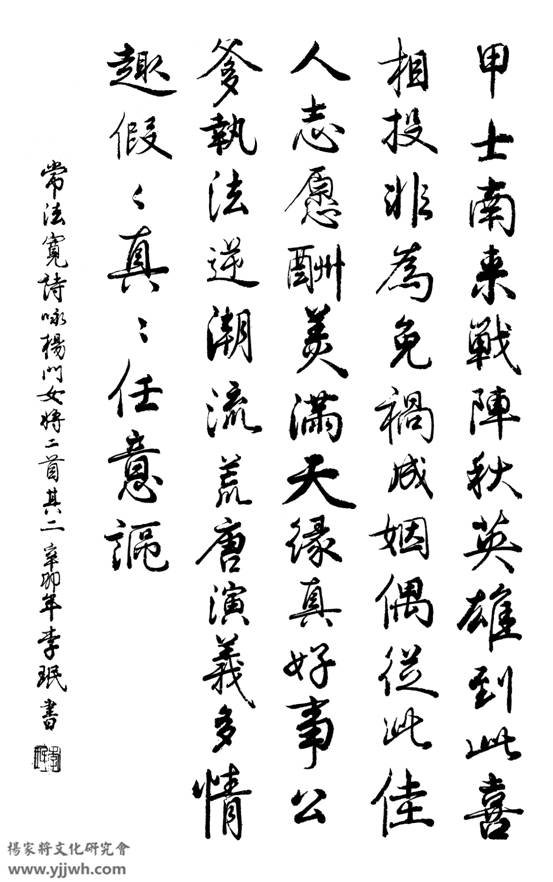 甲士南来戰陣秋英雄到此喜
相投非為免禍成姻偶從此佳
人志愿酬美滿天緣真好事公
爹執法逆潮流荒唐演義多情
趣假〻真〻任意謳
常法寬詩咏楊門女將二首其二 辛卯年李珉書
楊家將文化研究會
www.yjjwh.com